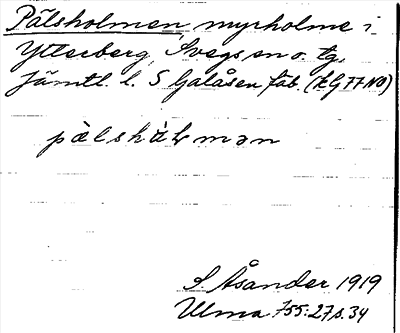 Pälsholmen myrholme i
Ytterberg, Svegs sn o. tg,
Jämtl. l. S Galåsen fäb. (kG 77 NO)
pälshålman
S. Åsander 1919
Ulma 755:27 s. 34